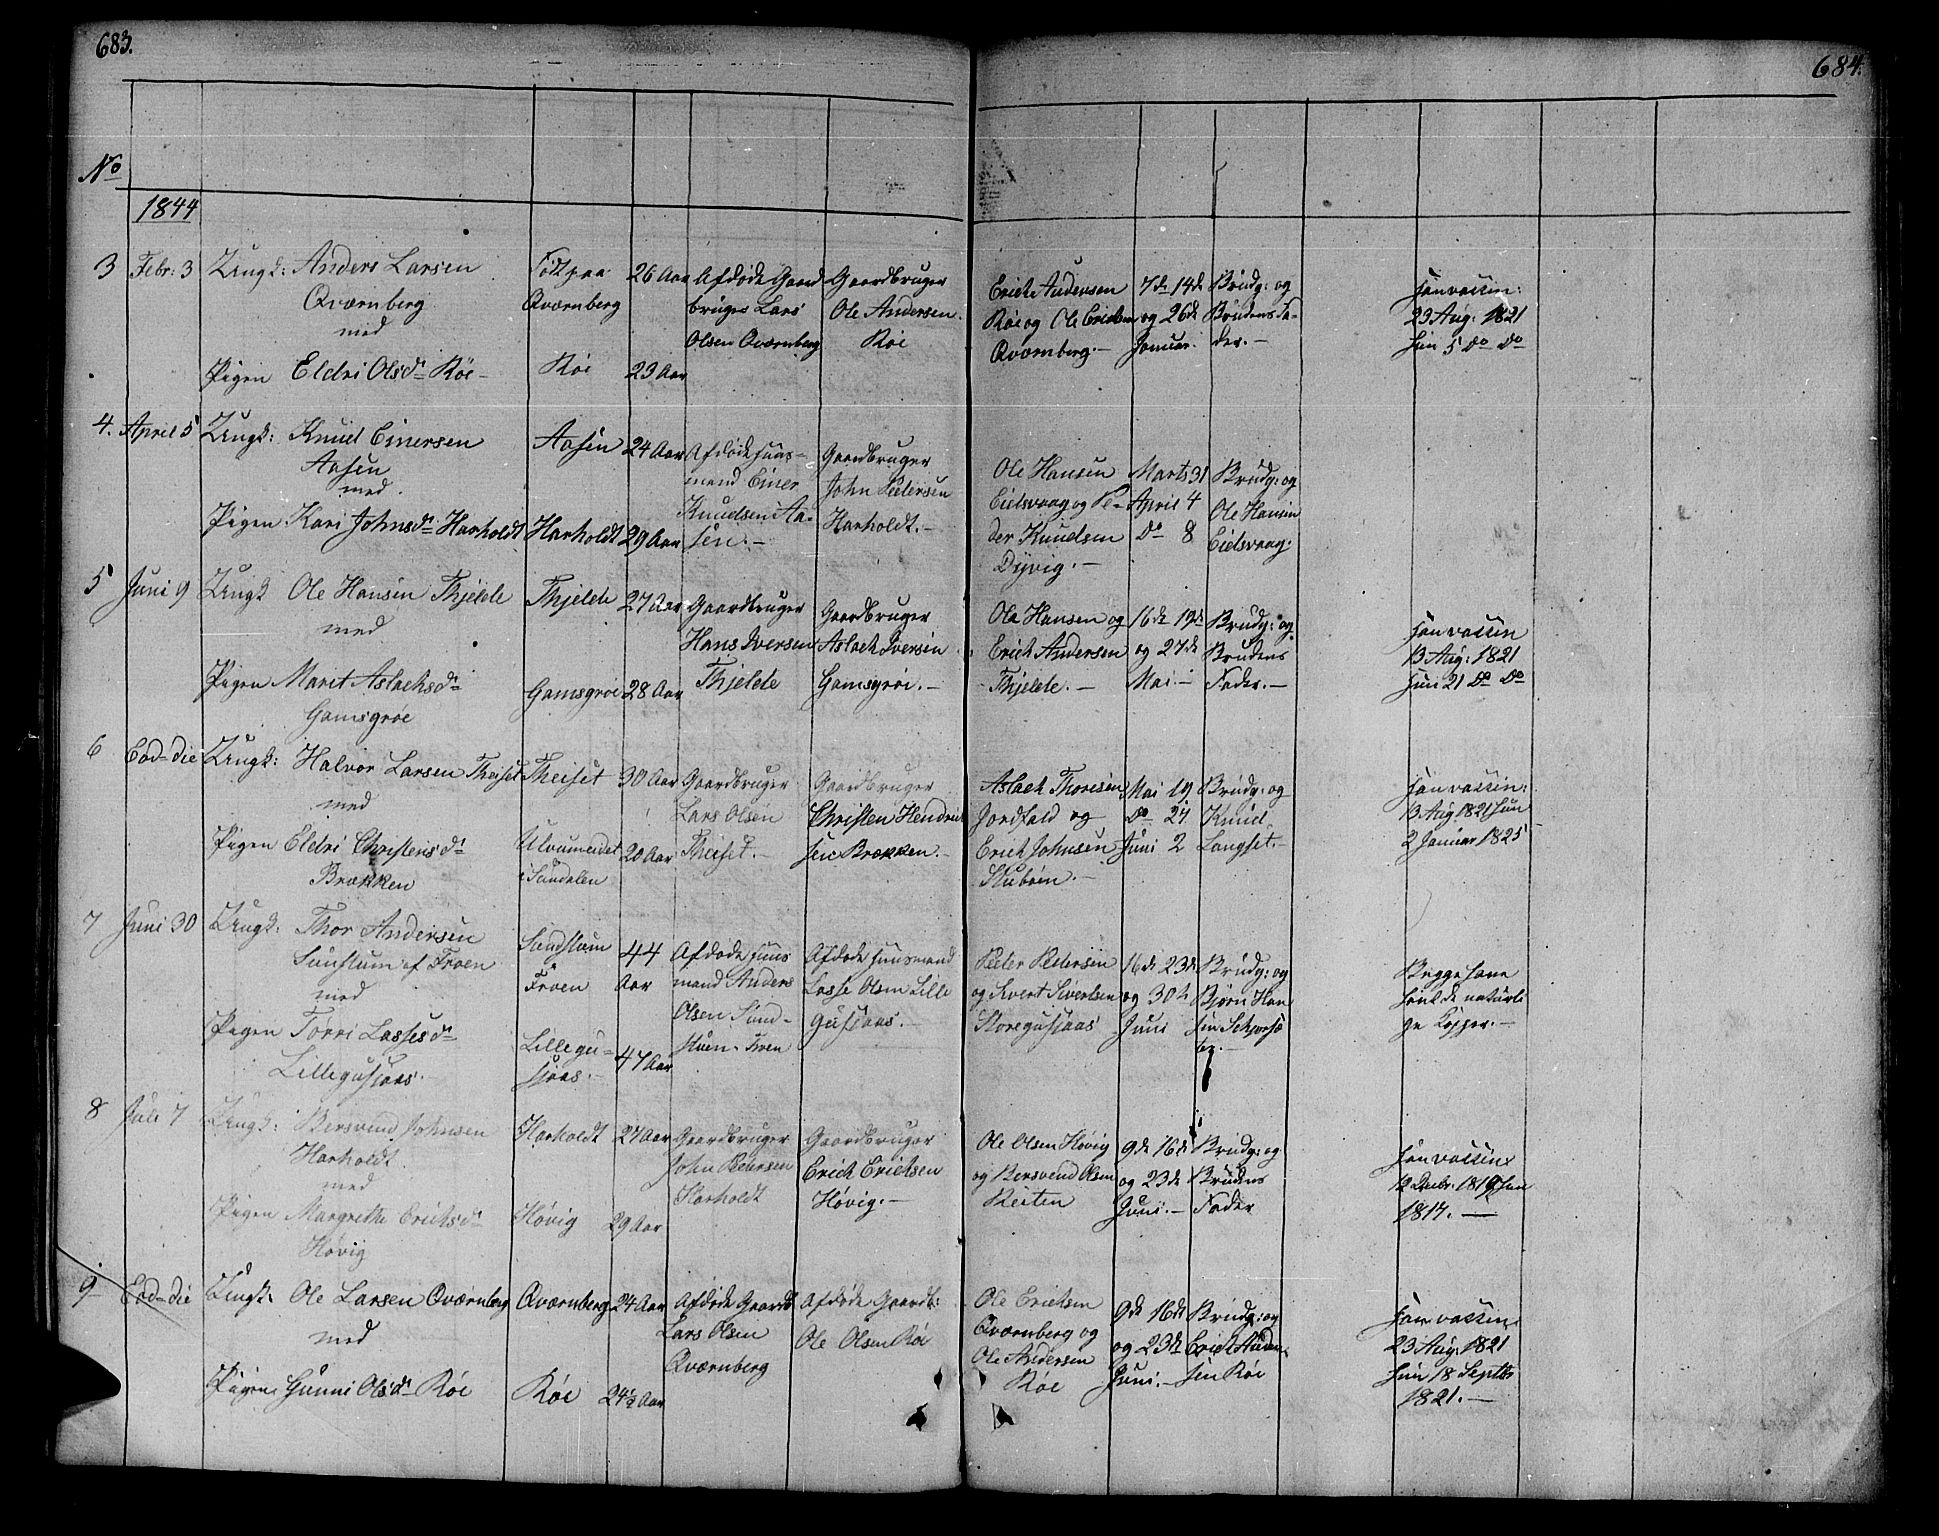 683.
684.
No
1844
3 Febr: 3 Ungk: Anders Larsen Qværnberg med Pigen Eldri Olsdr Röe
Födt paa Qværnberg Röe
26 Aar 23 Aar
Afdöde Gaardbruger Lars Olsen Qværnberg
Gaardbruger Ole Andersen Röe
Erich Andersen Röe og Ole Erichsen Qværnberg.
7de 14de og 26de Januar.
Brudg: og Brudens Fader.
han vaccin: 23 Aug: 1821 hun 5 Do Do
4. April 5 Ungk: Knud Einersen Aasen med Pigen Kari Johnsdr Harholdt
Aasen Harholdt
24 Aar 29 Aar
Afdöde Huusmand Einer Knudsen Aasen.
Gaardbruger John Pedersen Harholdt.
Ole Hansen Eidsvaag og Peder Knudsen Dyvig.
Marts 31 April 4 Do 8
Brudg: og Ole Hansen Eidsvaag.
5 Juni 9 Ungk Ole Hansen Thjelde med Pigen Marit Aslachsdr Gamsgröe
Thjelde Gamsgröe
27 Aar 28 Aar
Gaardbruger Hans Iversen Thjelde
Gaardbruger Aslach Iversen Gamsgröe.
Ole Hansen og Erich Andersen Thjelde.
16de 19de og 27de Mai
Brudg: og Brudens Fader.
han vaccin 13 Aug: 1821 hun 21 Do Do
6 Eod-die Ungk: Halvor Larsen Theiset med Pigen Eldri Christensdr Brækken
Theiset i Sundalen
30 Aar 20 Aar
Gaardbruger Lars Olsen Theiset.
Gaardbruger Christen Hendrichsen Brækken.
Aslach Thoresen Jordfald og Erich Johnsen Stuböen.
Mai 19 Do 27. Juni 2
Brudg: og Knud Langset.
han vaccin: 13 Aug 1821 hun 2 Januar 1825
7 Juni 30 Ungk: Thor Andersen af Froen med Pigen Torri Lassesdr Lillegusjaas.
Froen Lillegusjaas.
44 Aar 47 Aar
Afdöde Huusmand Anders Olsen Froen
Afdöde Huusmand Lasse Olsen Lillegusjaas.
Peder Pedersen og Sivert Sivertsen Storegusjaas
16de 23de og 30te Juni
Brudg: og Björn Hansen
Begge have havt de naturlige Kopper.
8 Juli 7 Ungk: Bersvend Johnsen Harholdt med Pigen Margrethe Erichsdr Hövig
Harholdt Hövig
27 Aar 29 Aar
Gaardbruger John Pedersen Harholdt
Gaardbruger Erich Erichsen Hövig.
Ole Olsen Hövig og Bersvend Olsen Reiten
9de 16de og 23de Juni.
Brudg: og Brudens Fader
han vaccin: 1819 hun 1817.
9 Eod-die Ungk: Ole Larsen Qværnberg med Pigen Gunni Olsdr Röe
Qværnberg Röe
24 Aar 24½ Aar
Afdöde Gaardb Lars Olsen Qværnberg
Afdöde Gaardb: Ole Olsen Röe
Ole Erichsen Qværnberg og Ole Andersen Röe
9de 16de og 23de Juni.
Brudg: og Erich Andersen Röe
han vaccin: 23 Aug: 1821 hun 18 Septbr 1821.